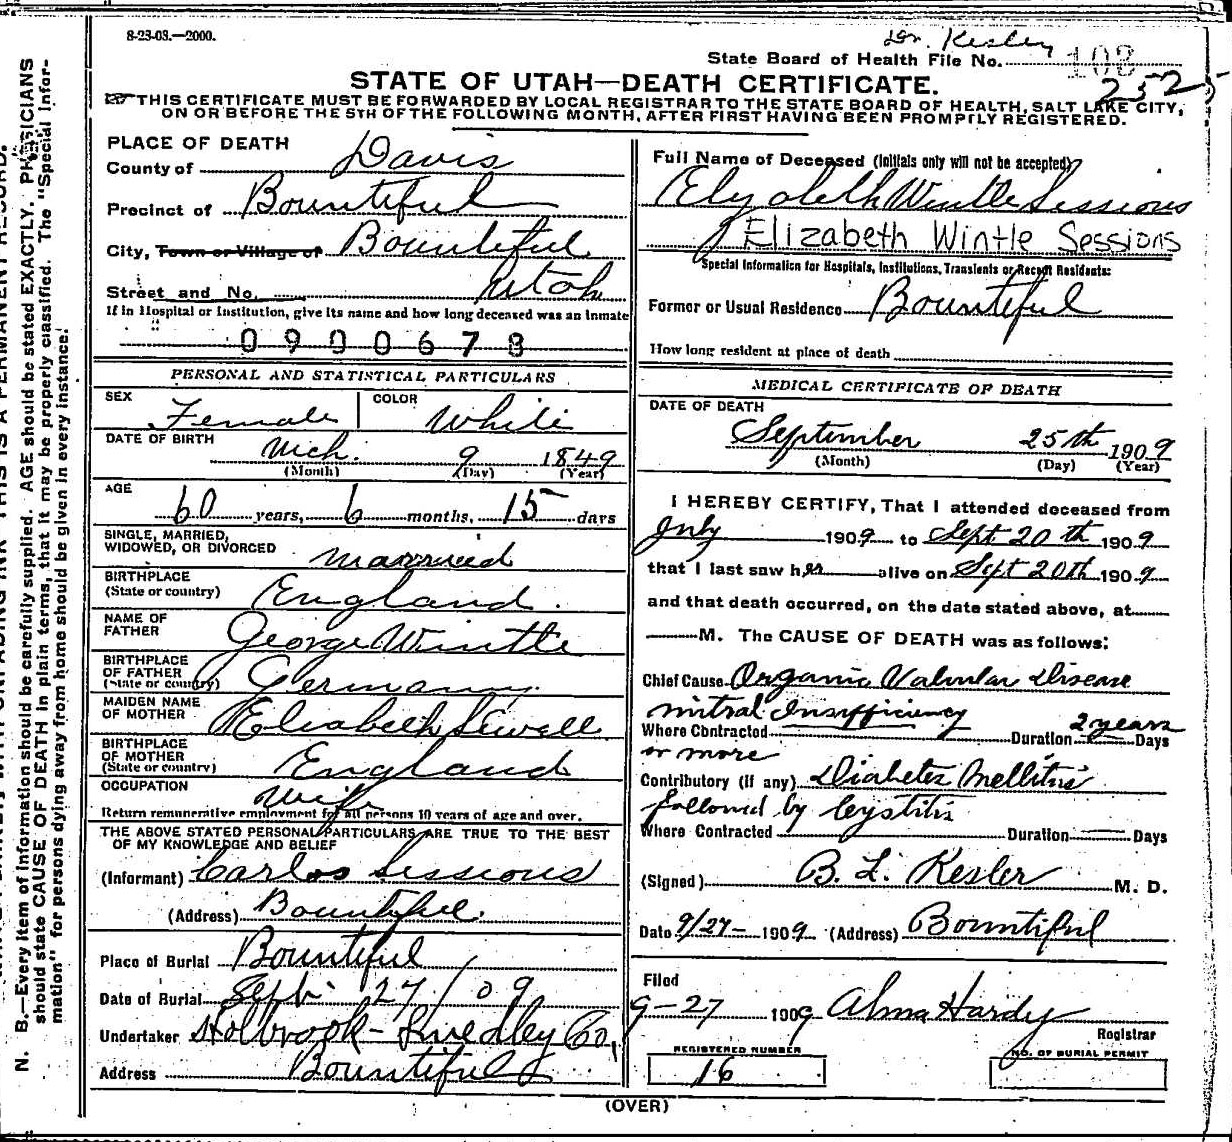 8-23-03.—2000.
Dr. Kesley
State Board of Health File No. 108
2525
STATE OF UTAH—DEATH CERTIFICATE.
THIS CERTIFICATE MUST BE FORWARDED BY LOCAL REGISTRAR TO THE STATE BOARD OF HEALTH, SALT LAKE CITY,
ON OR BEFORE THE 5TH OF THE FOLLOWING MONTH, AFTER FIRST HAVING BEEN PROMPTLY REGISTERED.
PLACE OF DEATH
County of Davis
Precinct of Bountiful
City, Town or Village of Bountiful
Street and No. Utah
If in Hospital or Institution, give its name and how long deceased was an inmate
0900678
PERSONAL AND STATISTICAL PARTICULARS
SEX Female COLOR White
DATE OF BIRTH Mch. 9 1849
(Month) (Day) (Year)
AGE
60 years, 6 months, 15 days
SINGLE, MARRIED,
WIDOWED, OR DIVORCED married
BIRTHPLACE
(State or country) England.
NAME OF
FATHER George Wintle
BIRTHPLACE
OF FATHER
(State or country) Germany.
MAIDEN NAME
OF MOTHER Elisabeth Sewell
BIRTHPLACE
OF MOTHER
(State or country) England
OCCUPATION Wife
Return remunerative employment for all persons 10 years of age and over.
THE ABOVE STATED PERSONAL PARTICULARS ARE TRUE TO THE BEST
OF MY KNOWLEDGE AND BELIEF
(Informant) Carlos Sessions
(Address) Bountiful.
Place of Burial Bountiful
Date of Burial Sept. 27/09
Undertaker Holbrook- Co.,
Address Bountiful
Full Name of Deceased (Initials only will not be accepted)
Elyzabeth Wintle Sessions
Elizabeth Wintle Sessions
Special Information for Hospitals, Institutions, Transients or Recent Residents:
Former or Usual Residence Bountiful
How long resident at place of death
MEDICAL CERTIFICATE OF DEATH
DATE OF DEATH
September 25th 1909
(Month) (Day) (Year)
I HEREBY CERTIFY, That I attended deceased from
July 1909 to Sept 20th 1909
that I last saw her alive on Sept 20th 1909
and that death occurred, on the date stated above, at
M. The CAUSE OF DEATH was as follows:
Chief Cause Organic Valvular Disease
mitral Insufficiency 2 years
Where Contracted Duration Days
or more
Contributory (if any) Diabetes Mellitus
followed by Cystitis
Where Contracted Duration Days
(Signed) B. L. Kesler M. D.
Date 9/27- 1909 (Address) Bountiful
Filed
9-27 1909 Alma Hardy
Registrar
REGISTERED NUMBER
16
NO. OF BURIAL PERMIT
(OVER)
N. B.—Every item of information should be carefully supplied. AGE should be stated EXACTLY. PHYSICIANS
should state CAUSE OF DEATH in plain terms, that it may be properly classified. The "Special Infor-
mation" for persons dying away from home should be given in every instance.
THIS IS A PERMANENT RECORD.